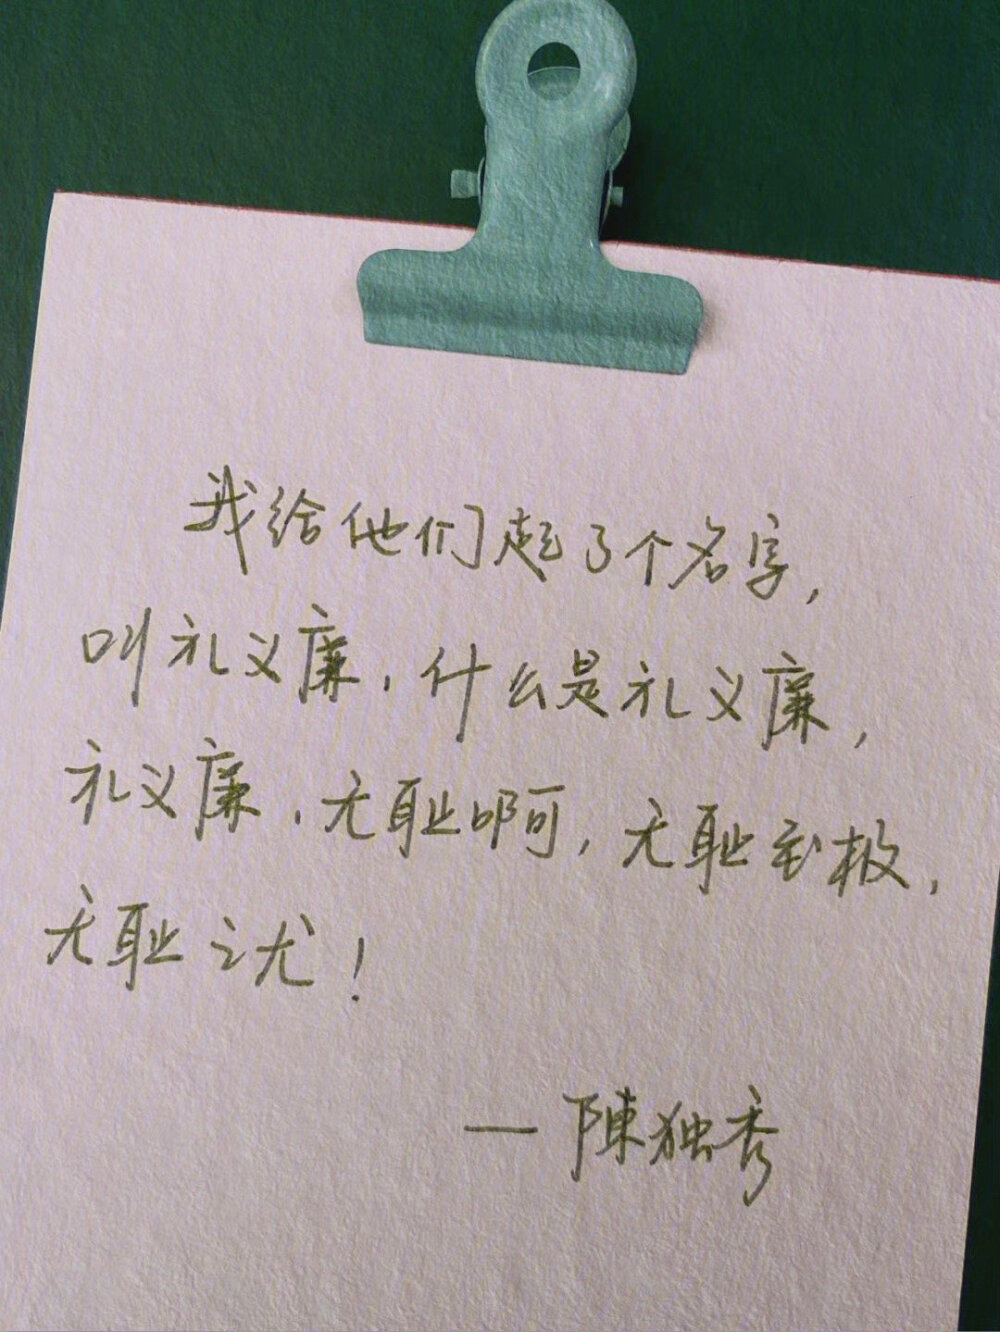 我给他们起了个名字,
叫礼义廉,什么是礼义廉,
礼义廉,无耻啊,无耻至极,
无耻之尤!
— 陳独秀